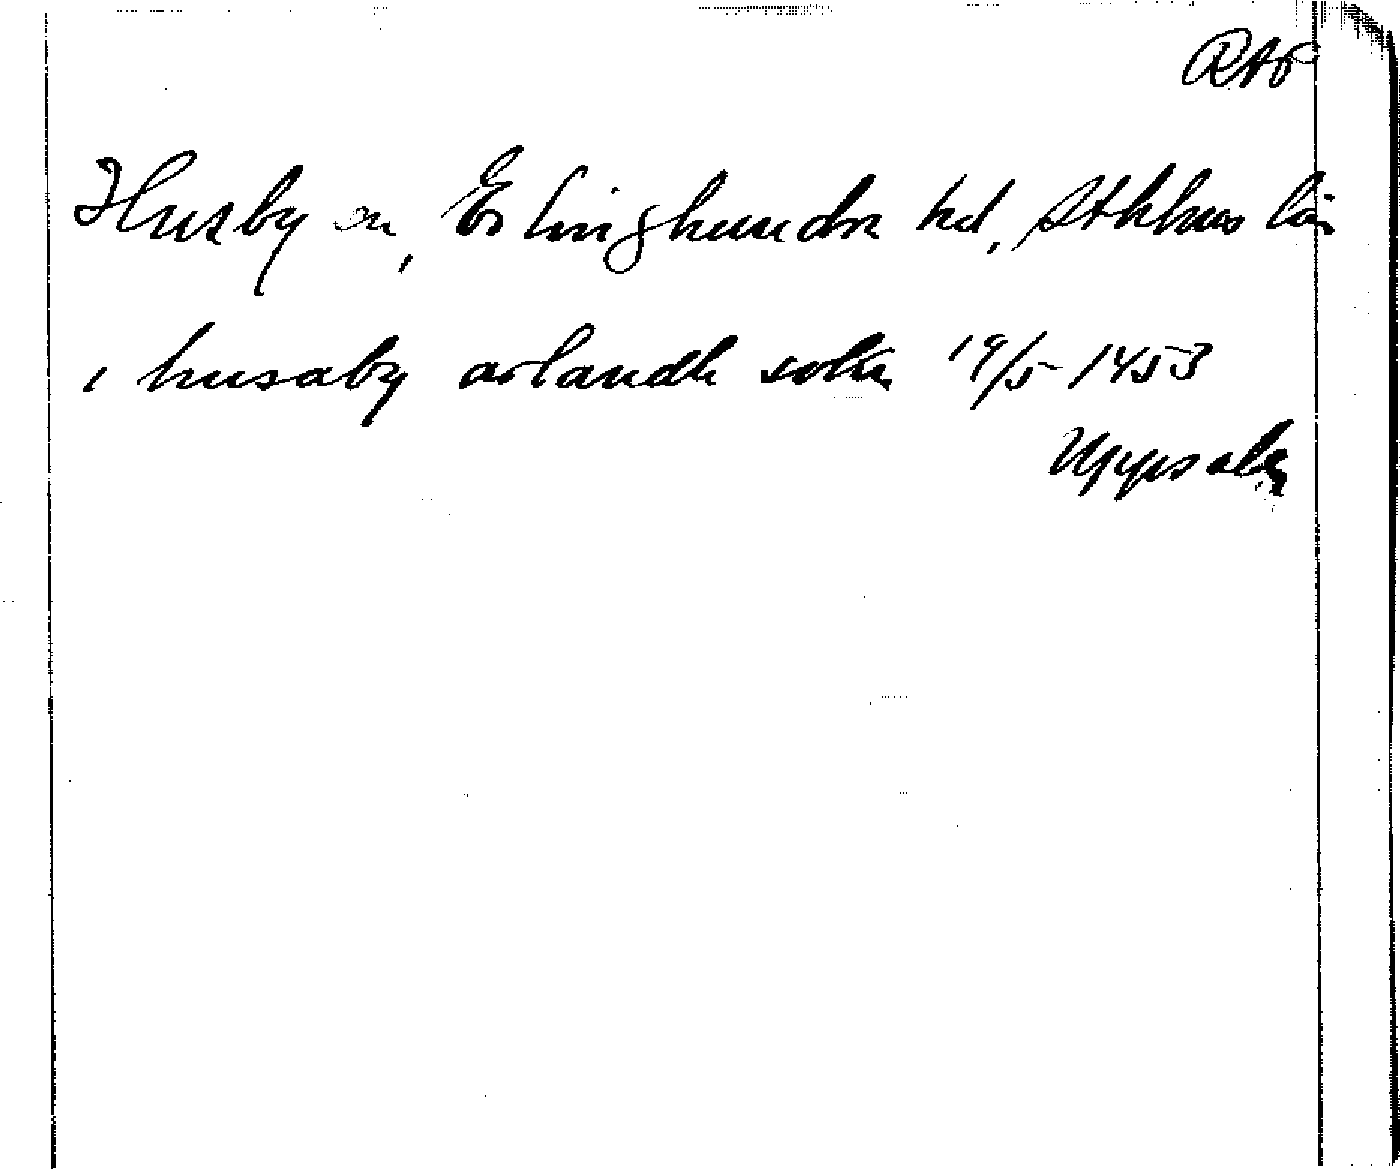 RAp
Husby sn, Erlinghundra hd, Sthlms län
i husaby arlandh sokn 19/5 1453
Uppsala